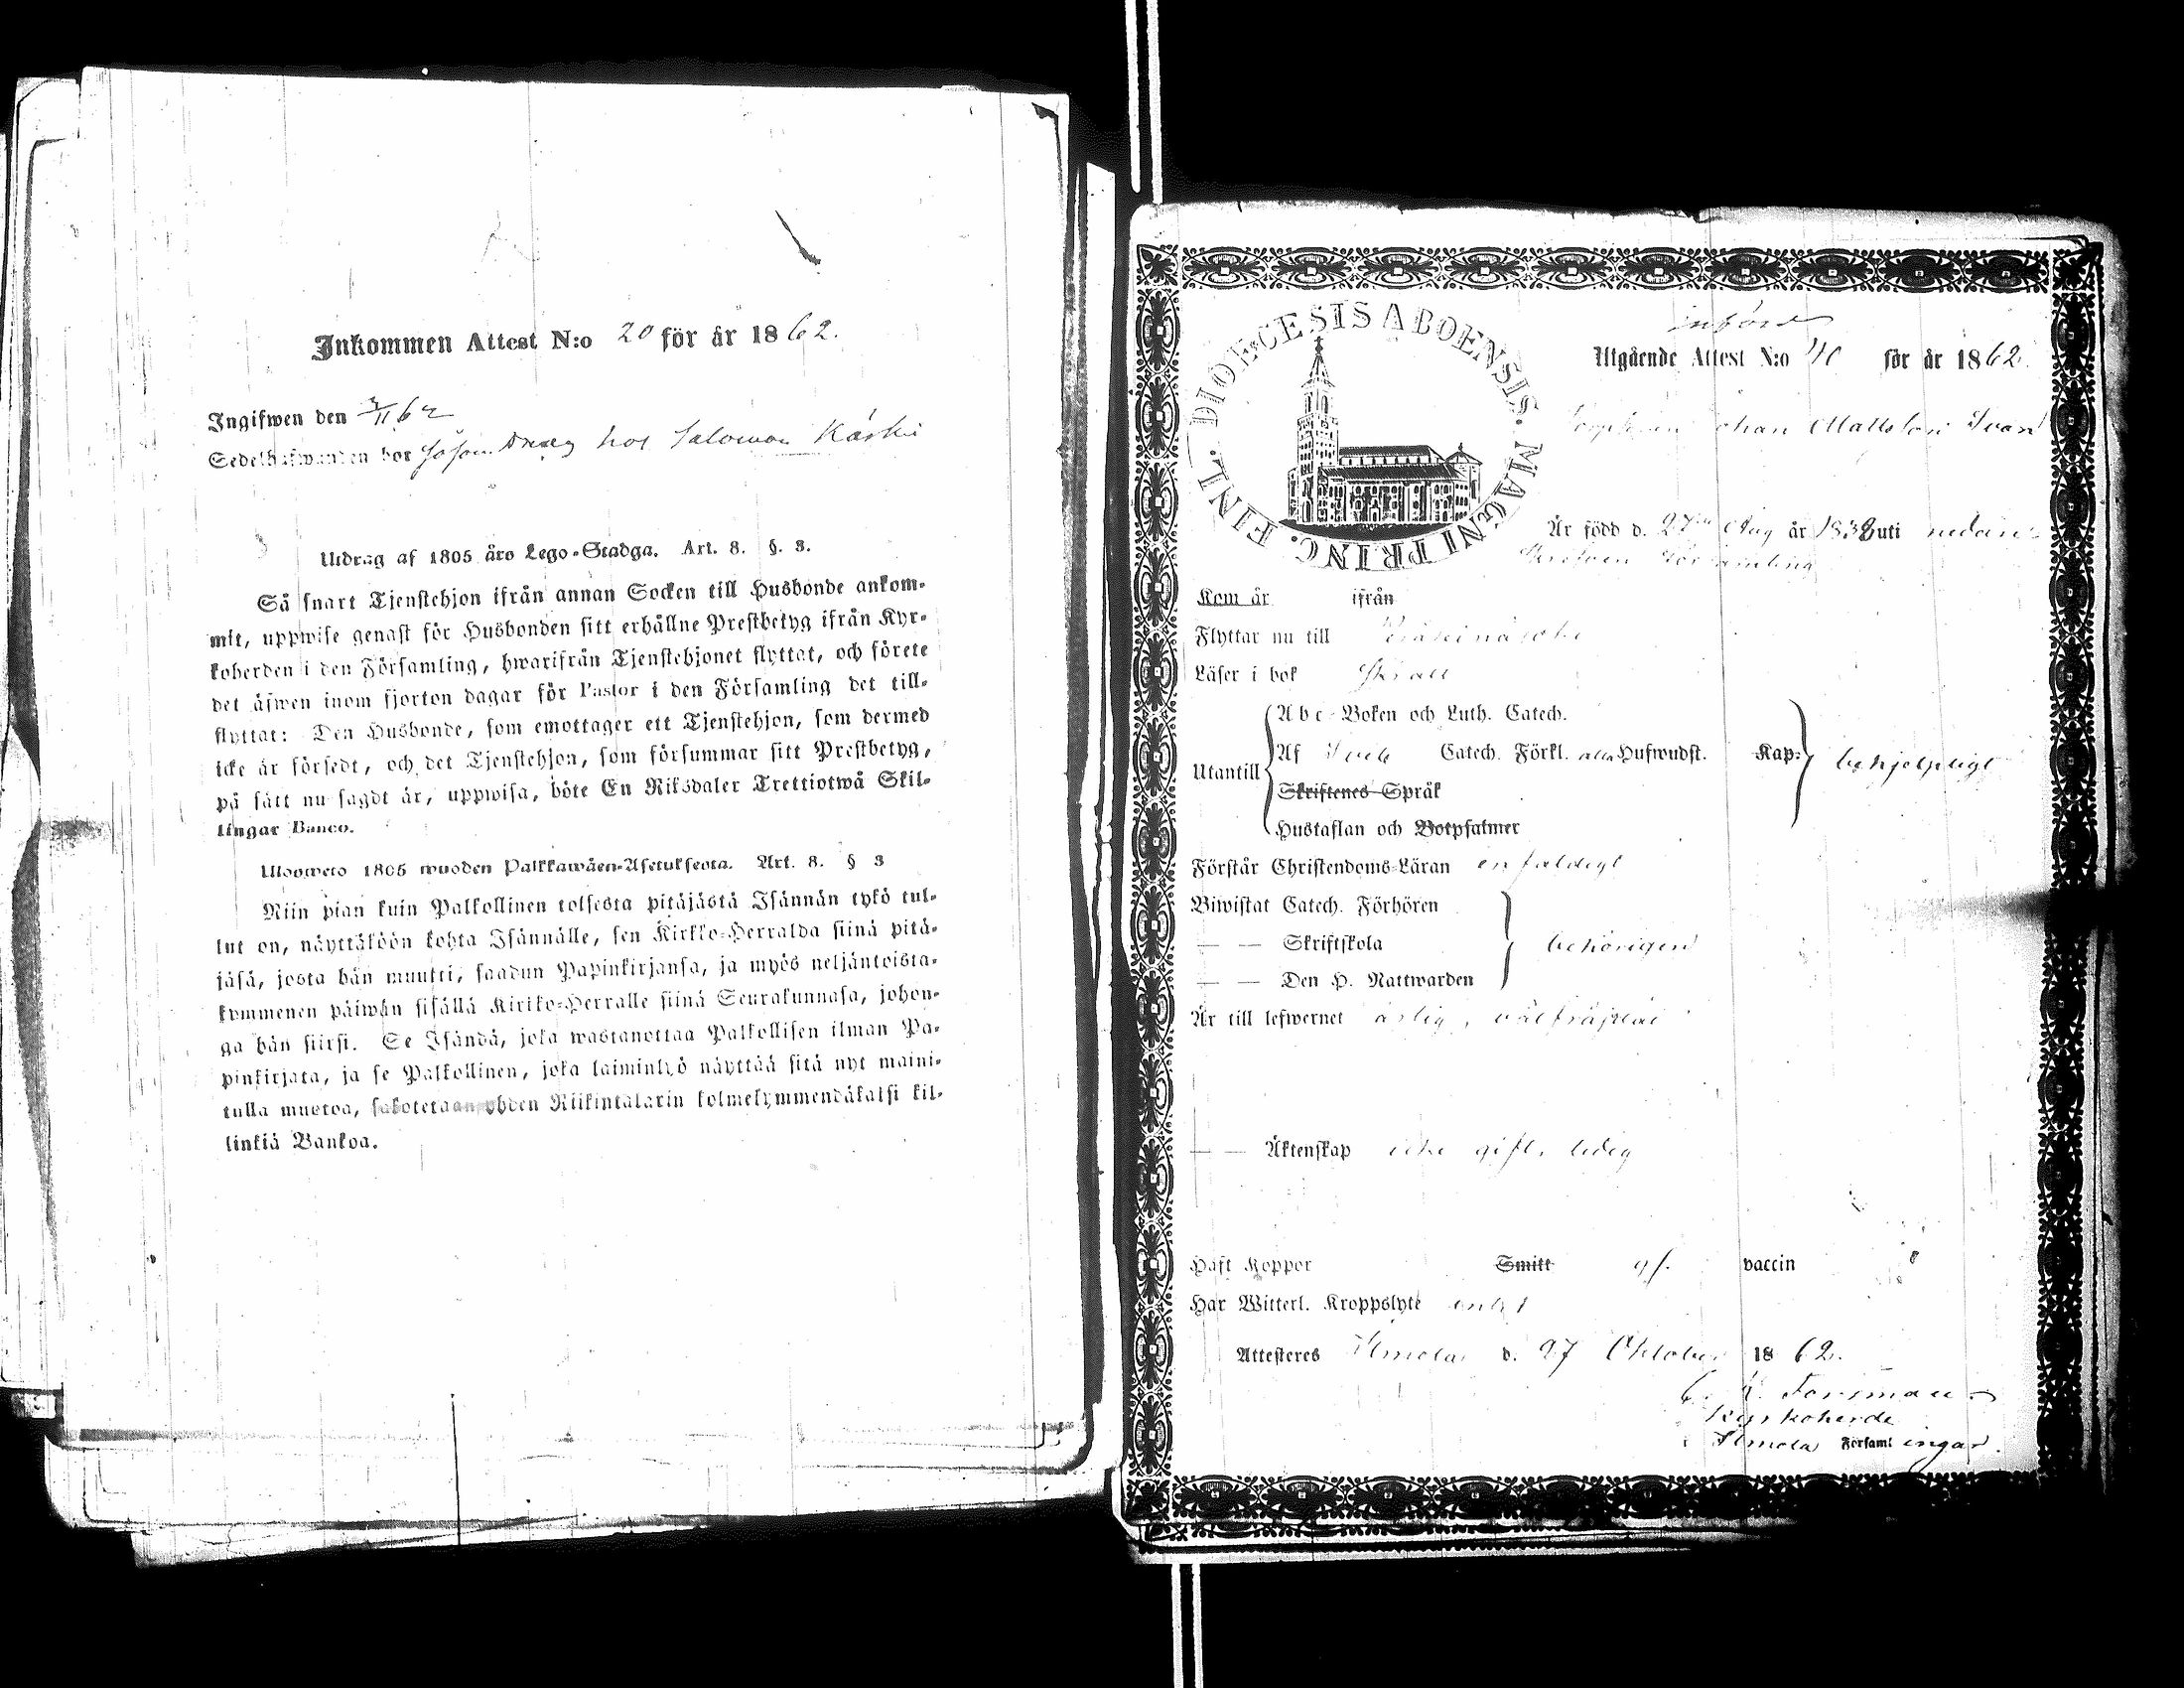 Inkommen Attest N:o 20 för år 1862.
Ingifwen den 3/11 62
Sedelhafwanden bor såsom Dräng hos Salomon Kåski
Utdrag af 1805 års Lego-Stadga. Art. 8. §. 3.
Så snart Tjenstehjon ifrån annan Socken till Husbonde ankom-
mit, uppwise genast för Husbonden sitt erhållne Prestbetyg ifrån Kyr-
koherden i den Församling, hwarifrån Tjenstehjonet flyttat, och förete
det äfwen inom fjorton dagar för Pastor i den Församling det till-
flyttat: Den Husbonde, som emottager ett Tjenstehjon, som dermed
icke är försedt, och det Tjenstehjon, som försummar sitt Prestbetyg,
på sätt nu sagdt är, uppwisa, böte En Riksdaler Trettiotwå Skil-
lingar Banco.
Ulosweto 1805 wuoden Palkkawäen-Asetuksesta. Art. 8. § 3
Niin pian kuin Palkollinen toisesta pitäjästä Isännän tykö tul-
lut on, näyttäköön kohta Isännälle, sen Kirkko-Herralda siinä pitä-
jäsä, josta hän muutti, saadun Papinkirjansa, ja myös neljäntoista-
kymmenen päiwän sisällä Kirikko-Herralle siinä Seurakunnasa, johon-
ga hän siirsi. Se Isändä, joka wastanottaa Palkollisen ilman Pa-
pinkirjata, ja se Palkollinen, joka laiminlyö näyttää sitä nyt maini-
tulla muotoa, sakotetaan yhden Riikintalarin kolmekymmendäkaksi kil-
linkiä Bankoa.
DIOECESIS ABOENSIS. MAGNI PRINC. FINL.
införd
Utgående Attest N:o 40 för år 1862.
Johan Mattsson Ivars
Är född d. 27 Aug år 1838 uti nedan-
skrefven Församling
Kom år ifrån
Flyttar nu till Peräseinäjoki
Läser i bok
Abc-Boken och Luth. Catech.
Utantill Af Sveb Catech. Förkl. alla Hufwudst. Kap: behjelpligt
Skriftenes Språk
Hustaflan och Botpsalmer
Förstår Christendoms-Läran enfaldigt
Biwistat Catech. Förhören
— — Skriftskola behörigen
— — Den H. Nattwarden
Är till lefwernet ärlig, välfräjdad
— — Äktenskap icke gift, ledig
Haft Koppor Smitt gf. vaccin
Har Witterl. Kroppslyte intet
Attesteres Ilmola d. 27 Oktober 1862.
C. R. Forsman
Kyrkoherde
i Ilmola Församlingar.